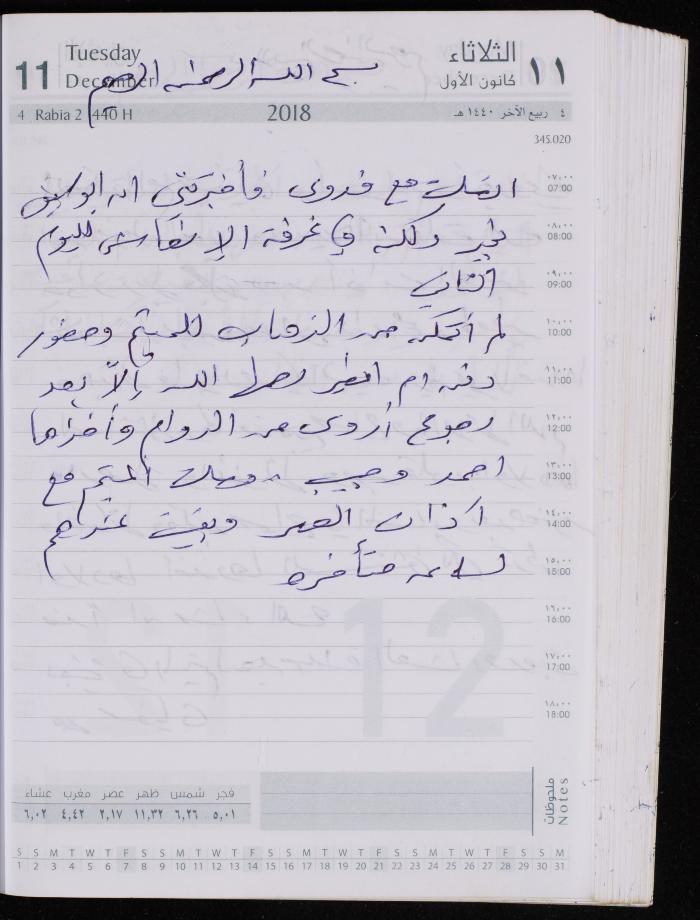 11
Tuesday
December
الثلاثاء
كانون الأول
١١
بسم الله الرحمن الرحيم
4 Rabia 2 1440 H
2018
٤ ربيع الآخر ١٤٤٠ هـ
345.020
اتصلت مع فدوى فأخبرتني انه ابو
بخير ولكنه في غرفة الإنعاش لليوم
الثاني
لم أتمكن من الذهاب للميتم وحضور
دفنه ام الله إلاّ بعد
رجوع أروى من الدوام وأخذها
احمد وحبيب ووصلت الميتم مع
اذان العصر وبقيت عندهم
لساعه متأخره
٠٧:٠٠
07:00
٠٨:٠٠
08:00
٠٩:٠٠
09:00
١٠:٠٠
10:00
١١:٠٠
11:00
١٢:٠٠
12:00
١٣:٠٠
13:00
١٤:٠٠
14:00
١٥:٠٠
15:00
١٦:٠٠
16:00
١٧:٠٠
17:00
١٨:٠٠
18:00
12
فجر شمس ظهر عصر مغرب عشاء
٥,٠١ ٦,٢٦ ١١,٣٢ ٢,١٧ ٤,٤٢ ٦,٠٢
ملحوظات
Notes
S S M T W T F S S M T W T F S S M T W T F S S M T W T F S S M
1 2 3 4 5 6 7 8 9 10 11 12 13 14 15 16 17 18 19 20 21 22 23 24 25 26 27 28 29 30 31